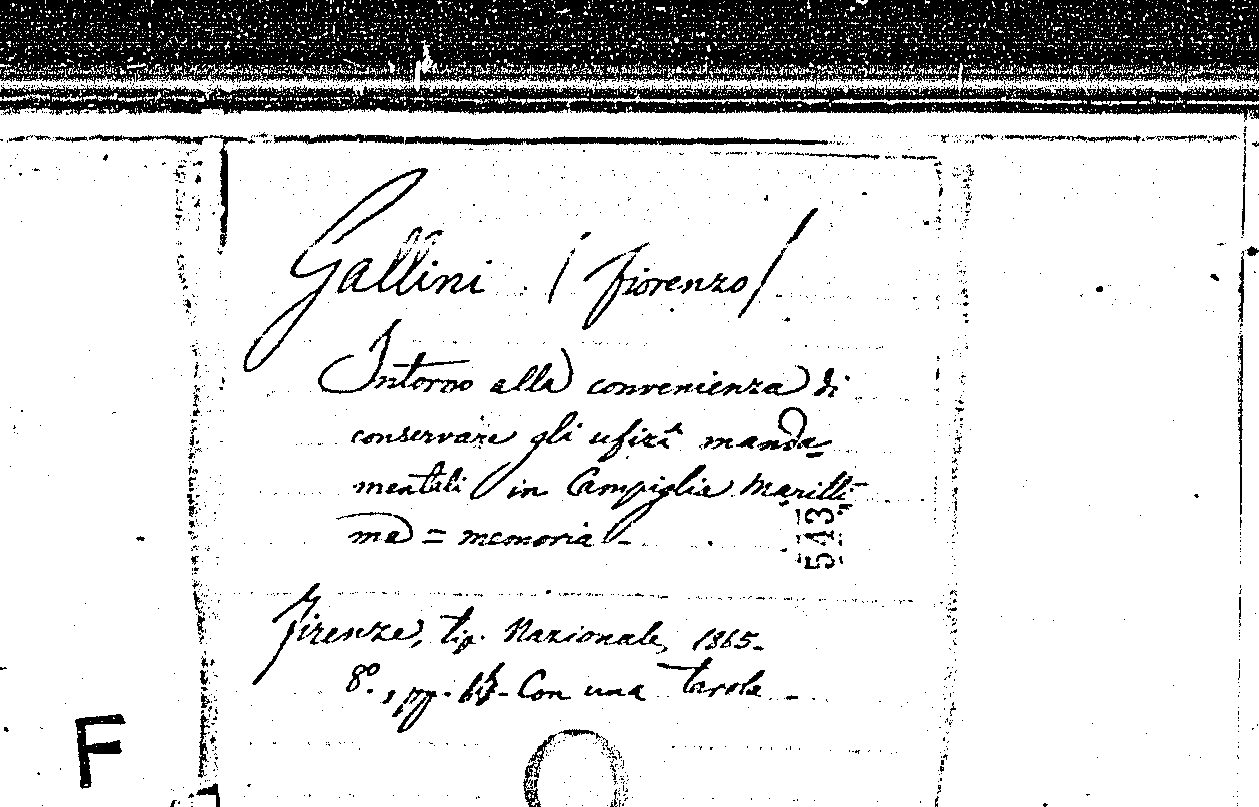 Gallini (Fiorenzo)
Intorno alla convenienza di
conservare gli ufizi manda-
mentali in Campiglia Maritti-
ma = memoria -
543
Firenze, tip. Nazionale, 1865.
8º., pp. - Con una tavola -
F